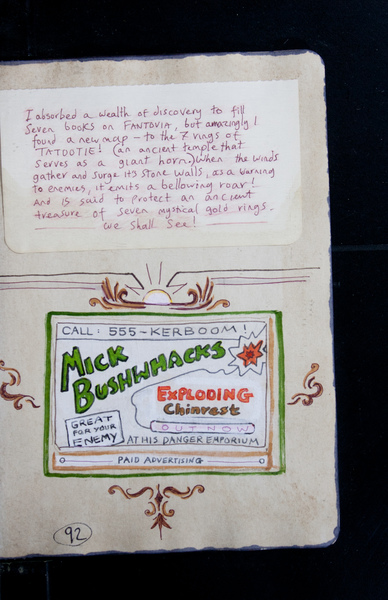 I absorbed a wealth of discovery to fill
Seven books on FANTOVIA, but amazingly I
found a new map - to the 7 rings of
TATOOTIE! (an ancient temple that
serves as a giant horn.) When the winds
gather and surge its stone walls, as a warning
To enemies, it emits a bellowing roar!
And is said to protect an ancient
treasure of seven mystical gold rings.
We shall See!
CALL: 555-KERBOOM!
MICK
BUSHWHACKS
EXPLODING
Chinrest
OUT NOW
GREAT
FOR YOUR
ENEMY
AT HIS DANGER EMPORIUM
PAID ADVERTISING
92